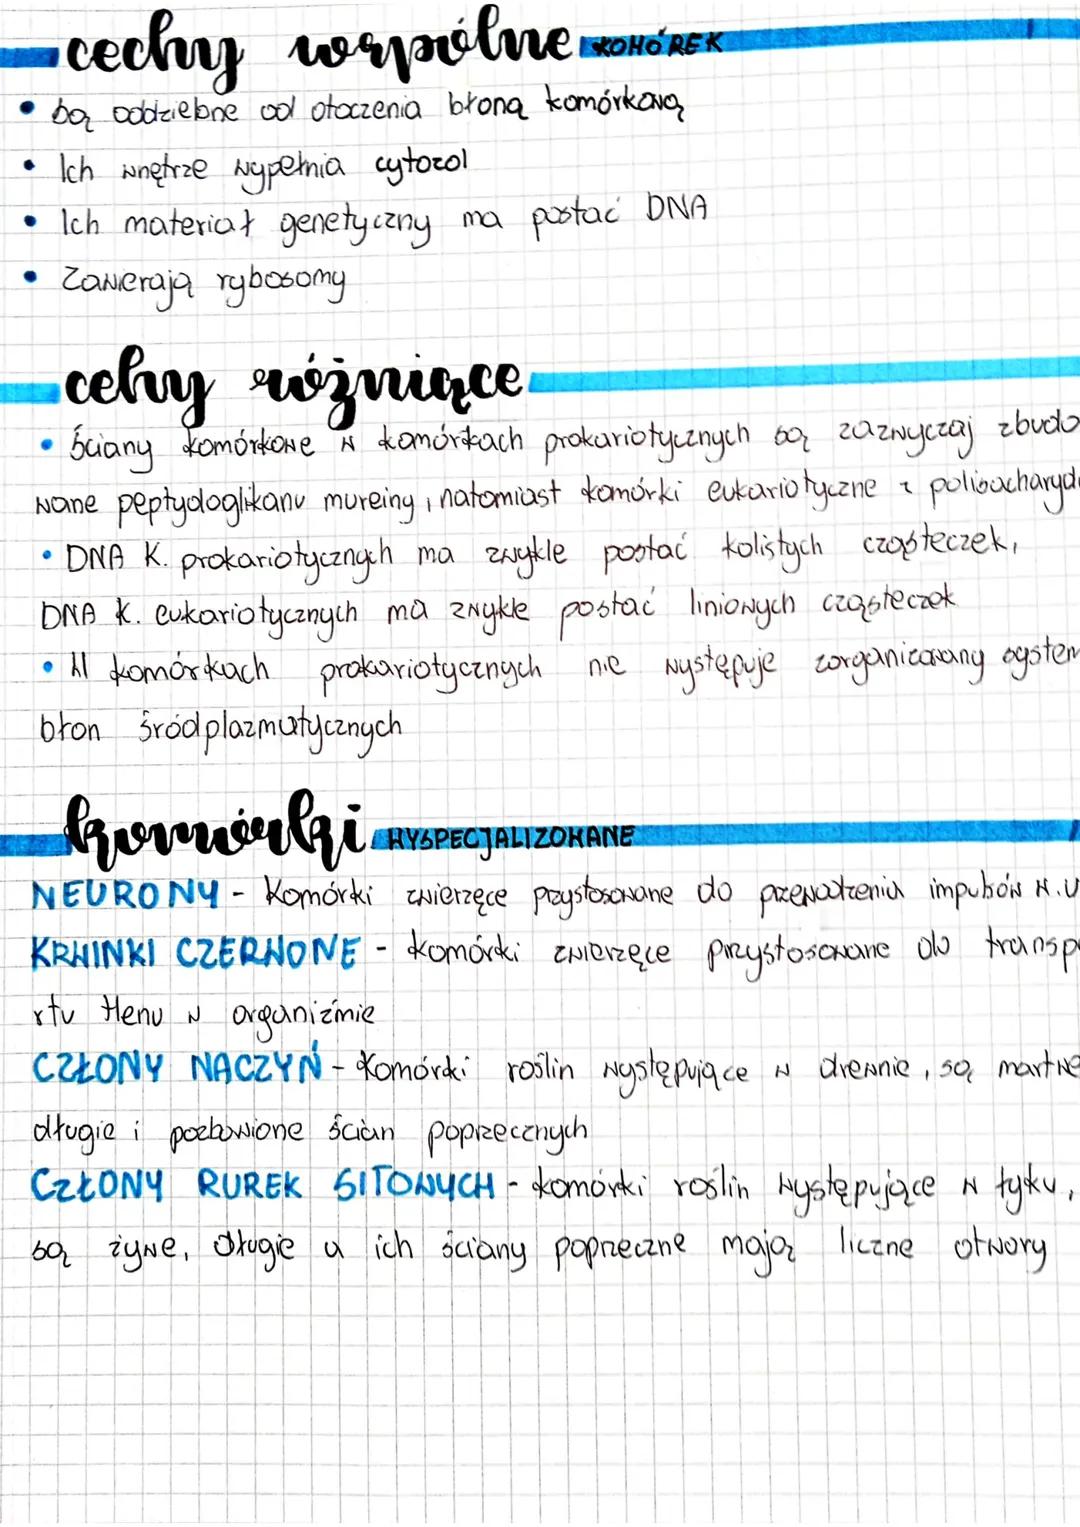 cechy wspólne KOMÓREK
• są oddzielone od otoczenia błoną komórkową
• Ich wnętrze wypełnia cytozol
• Ich materiał genetyczny ma postać DNA
• Zawierają rybosomy
cehy różniące
• Ściany komórkowe w komórkach prokariotycznych są zazwyczaj zbudo
wane peptydoglikanu mureiny, natomiast komórki eukariotyczne z polisacharyd
• DNA K. prokariotycznych ma zwykle postać kolistych cząsteczek,
DNA K. eukariotycznych ma zwykle postać liniowych cząsteczek
• W komórkach prokariotycznych nie występuje zorganizowany system
błon śródplazmatycznych
komórki WYSPECJALIZOWANE
NEURONY - Komórki zwierzęce przystosowane do przewodzenia impulsów N.U
KRWINKI CZERWONE - komórki zwierzęce przystosowane do transp
rtu tlenu w organiźmie
CZŁONY NACZYŃ - Komórki roślin występujące w drewnie, są martwe
długie i pozbawione ścian poprzecznych
CZŁONY RUREK SITOWYCH - komórki roślin występujące w łyku,
są żywe, długie a ich ściany poprzeczne mają liczne otwory